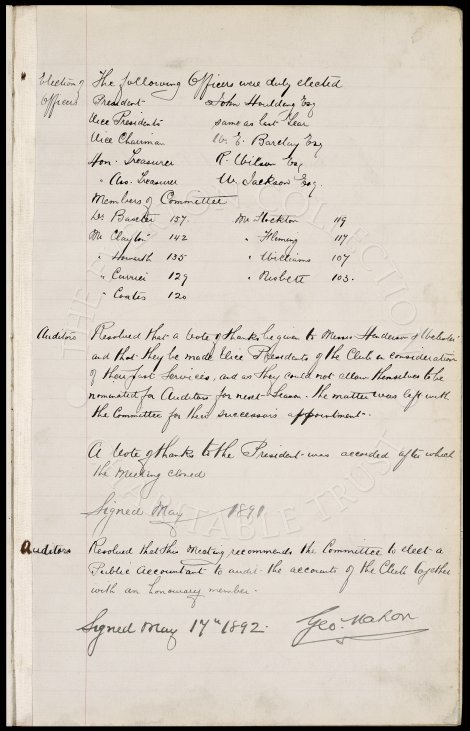 Election of The following Officers were duly elected
Officers President John Houlding Esq
Vice Presidents same as last Year
Vice Chairman W. E. Barclay Esq
Hon. Treasurer R. Wilson Esq
" Ass. Treasurer W. Jackson Esq.
Members of Committee
Dr Baxter 157 Mr Stockton 119
Mr Clayton 142 " Fleming 117
" Howarth 135 " Williams 107
" Currier 129 " Nisbett 103.
" Coates 120
Auditors Resolved that a Vote of thanks be given to Messrs Henderson &
and that they be made Vice Presidents of the Club in consideration
of their past Services, and as they could not allow themselves to be
nominated for Auditors for next Season. The matter was left with
the Committee for their successors appointment.
A Vote of thanks to the President was accorded after which
the Meeting closed
Signed May 1891
Auditors Resolved that this Meeting recommends the Committee to elect a
Public Accountant to audit the accounts of the Club together
with an honourary member.
Signed May 17th 1892. Geo. Mahon
THE EVERTON COLLECTION
CHARITABLE TRUST